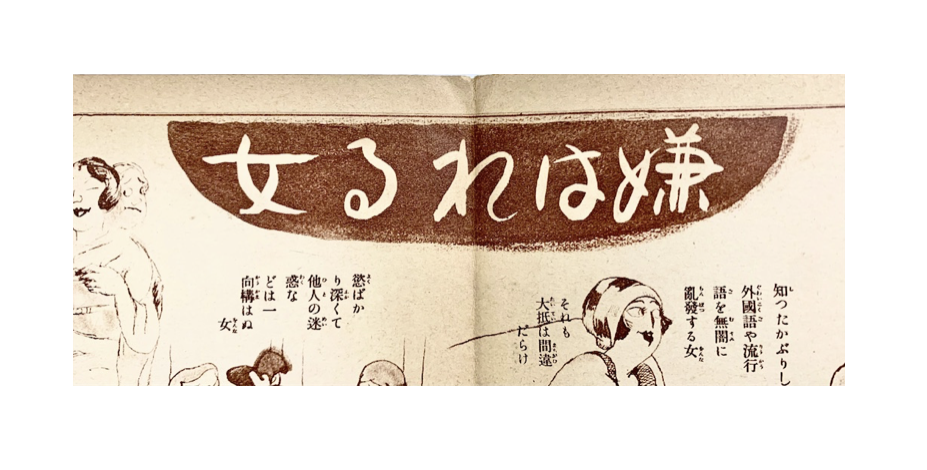 嫌はれる女
知つたかぶりし
外國語や流行
語を無闇に
亂發する女
それも
大抵は間違
だらけ
慾ばか
り深くて
他人の迷
惑な
どは一
向構はぬ
女